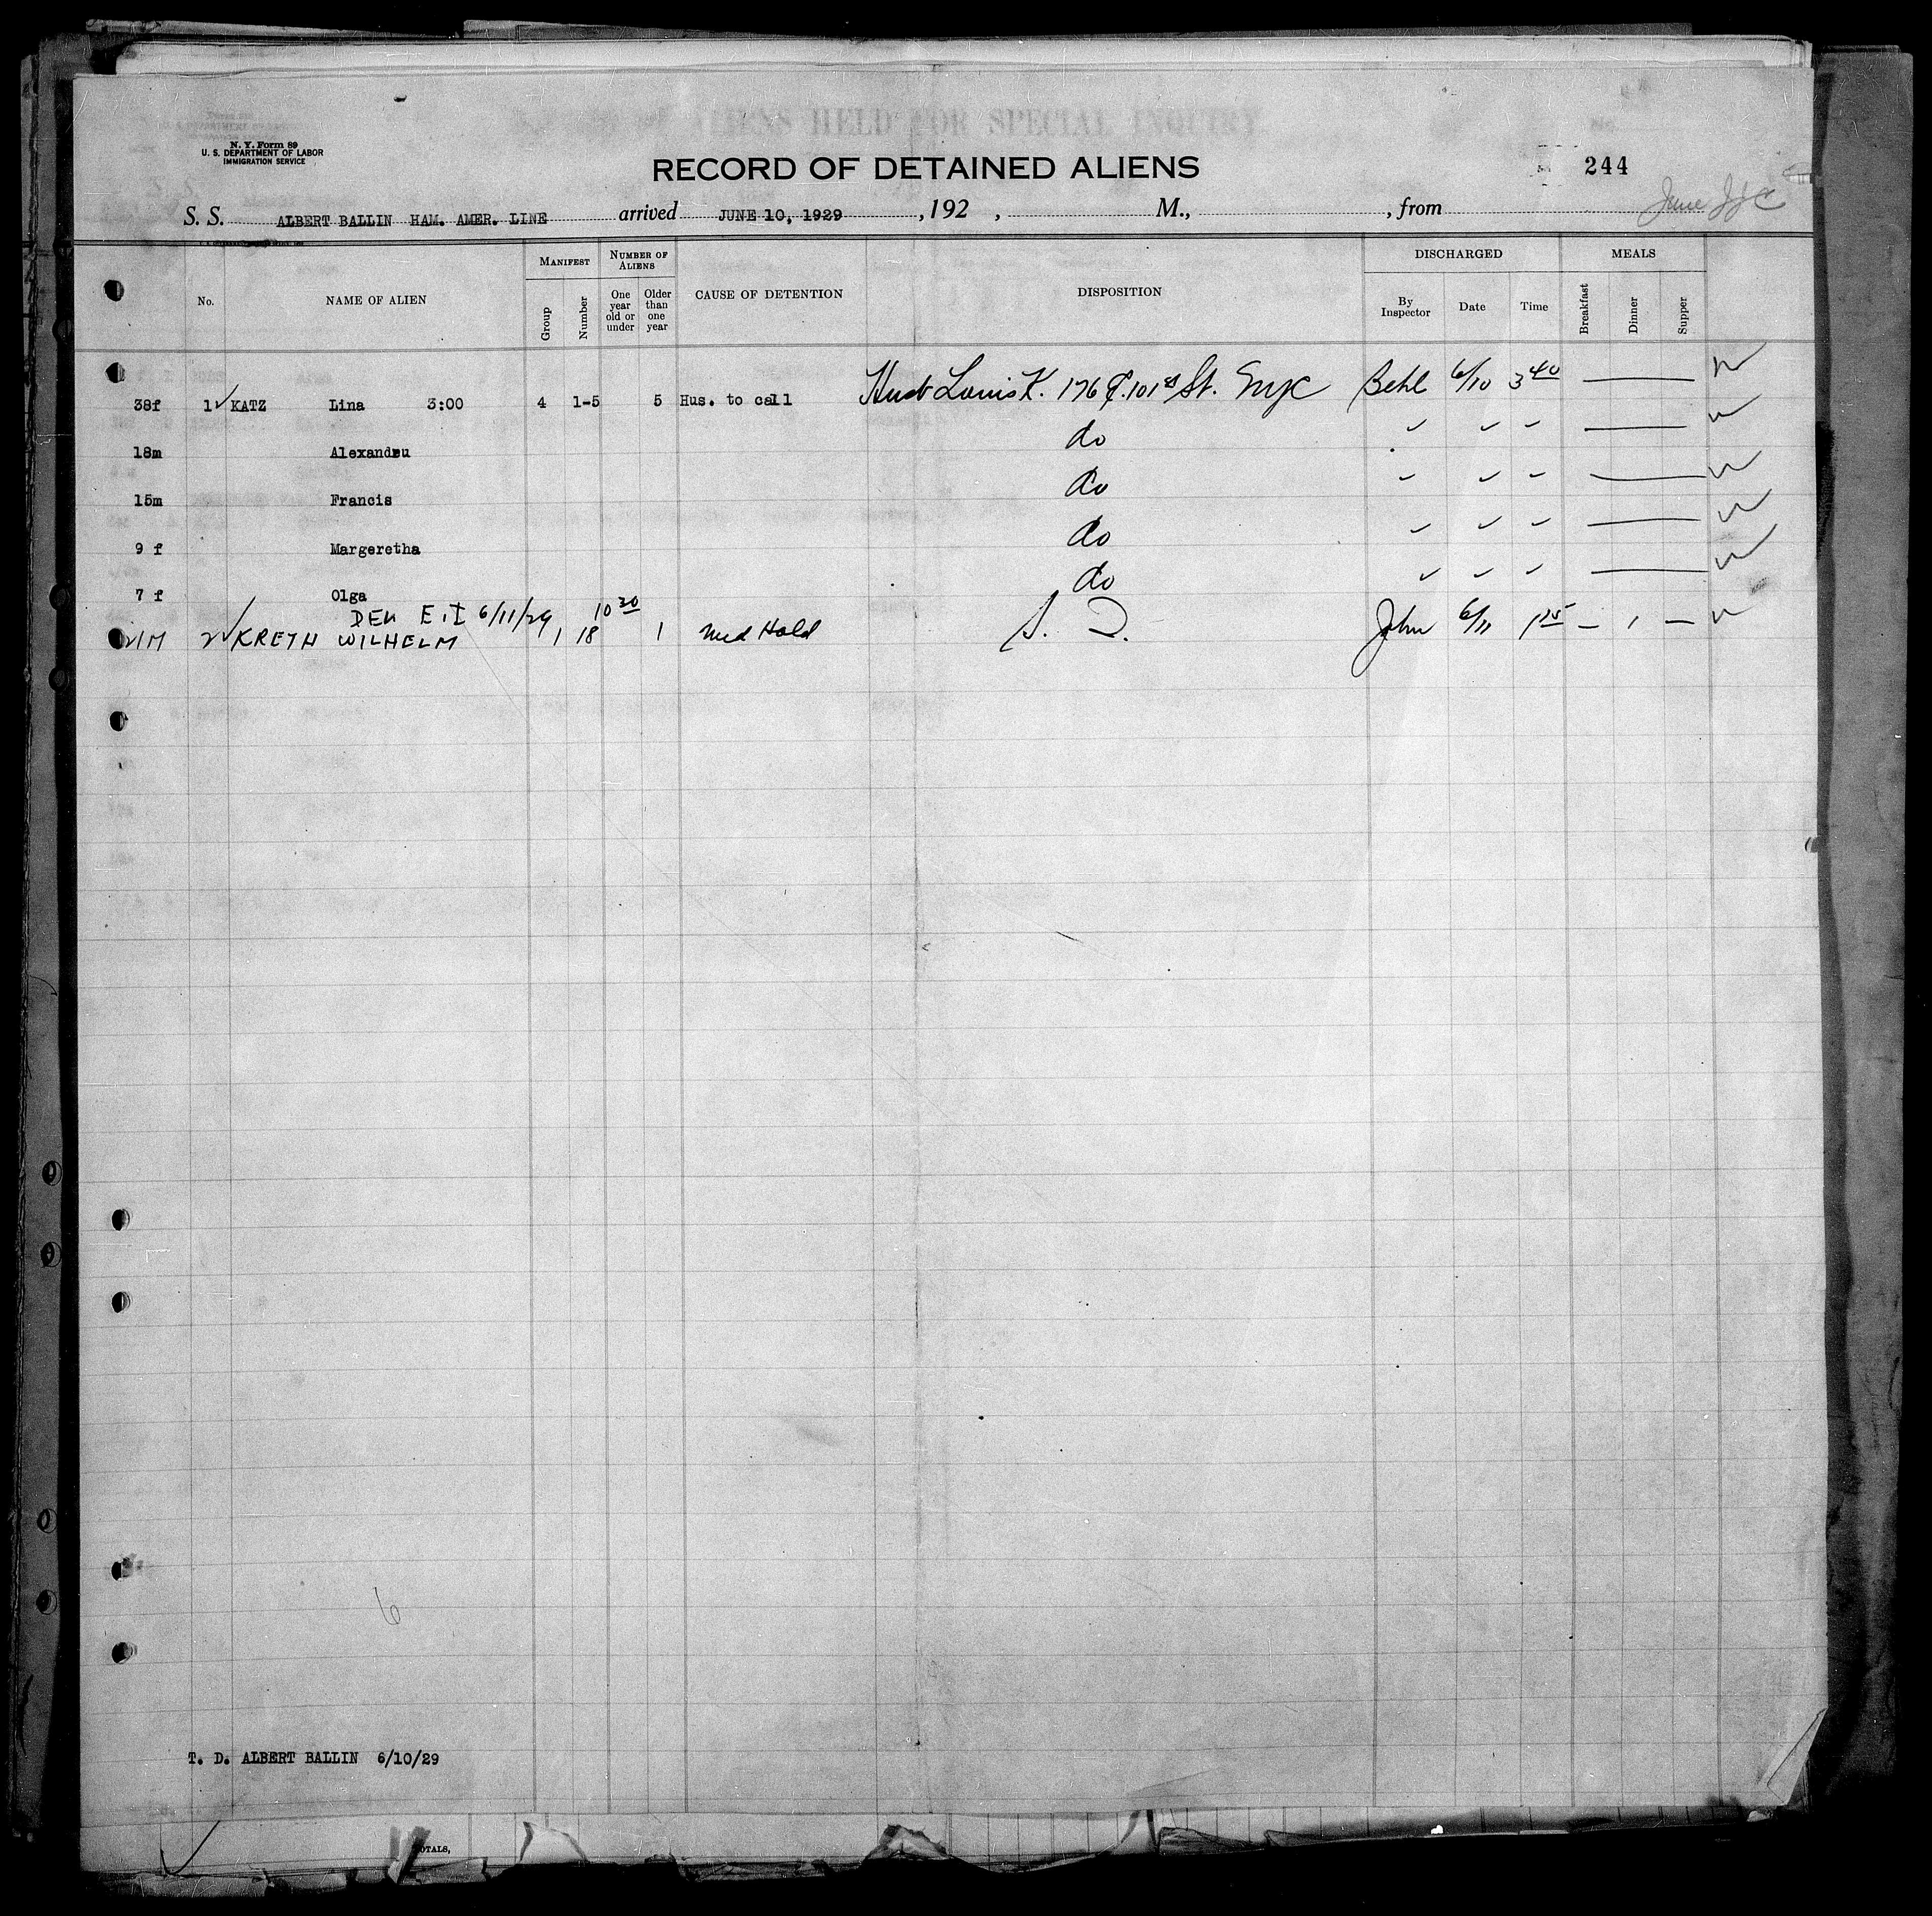 ALIENS HELD FOR SPECIAL INQUIRY
N. Y. Form 89
U. S. DEPARTMENT OF LABOR
IMMIGRATION SERVICE
RECORD OF DETAINED ALIENS
244
S. S. ALBERT BALLIN HAM. AMER. LINE arrived JUNE 10, 1929 , 192 , M., , from
June
MANIFEST NUMBER OF ALIENS DISCHARGED MEALS
No. NAME OF ALIEN Group Number One year old or under Older than one year CAUSE OF DETENTION DISPOSITION By Inspector Date Time Breakfast Dinner Supper
38f 1✓ KATZ Lina 3:00 4 1-5 5 Hus. to call Husb Louis K. 176 E. 101st St. NYC Behl 6/10 3 40
18m Alexandru do
15m Francis do
9 f Margeretha do
7 f Olga do
6/11/29 10 30
21M 2✓ KRETH WILHELM 1 18 1 Med Hold S. I. John 6/11
6
T. D. ALBERT BALLIN 6/10/29
TOTALS,